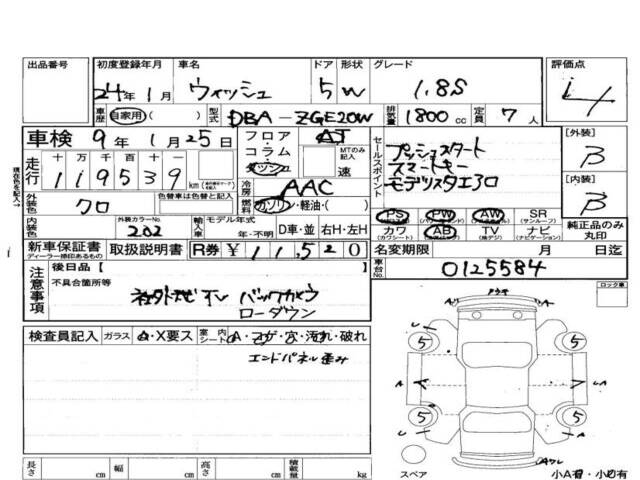 出品番号 初度登録年月 車名 ドア 形状 グレード 評価点
24年1月 ウィッシュ 5 W 1.8S
車歴 自家用 ( ) 型式 DBA-ZGE20W 排気量 1800cc 定員 7人
車検 9年1月25日 フロア・コラム・ダッシュ AT MTのみ記入 速
セールスポイント プッシュスタート
スマートキー
モデリスタエアロ
[外装] B
[内装] B
走行 十 万 千 百 十 一
119539 km
冷房 AAC
外装色 クロ 色替車は色替と記入 燃料 ガソリン・軽油・( )
PS PW AW SR (サンルーフ)
カワ (カワシート) AB TV (地デジ) ナビ (ナビゲーション)
純正品のみ丸印
内装色 外装カラーNo. 202 輸入車 モデル年式 年・不明 D車・並 右H・左H
新車保証書 ディーラー捺印あるもの 取扱説明書 R券 ¥11,520
名変期限 月 日迄
車台No. 0125584
注意事項 後日品【 】
不具合箇所等
社外ナビ TV バックカメラ
ローダウン
ロック車
検査員記入 ガラス A・X要ス 室内シート A・コゲ・穴・汚れ・破れ
エンドパネル歪み
5 5
5 5
スペア
小A有・小U有
長さ cm 幅 cm 高さ cm 積載量 kg